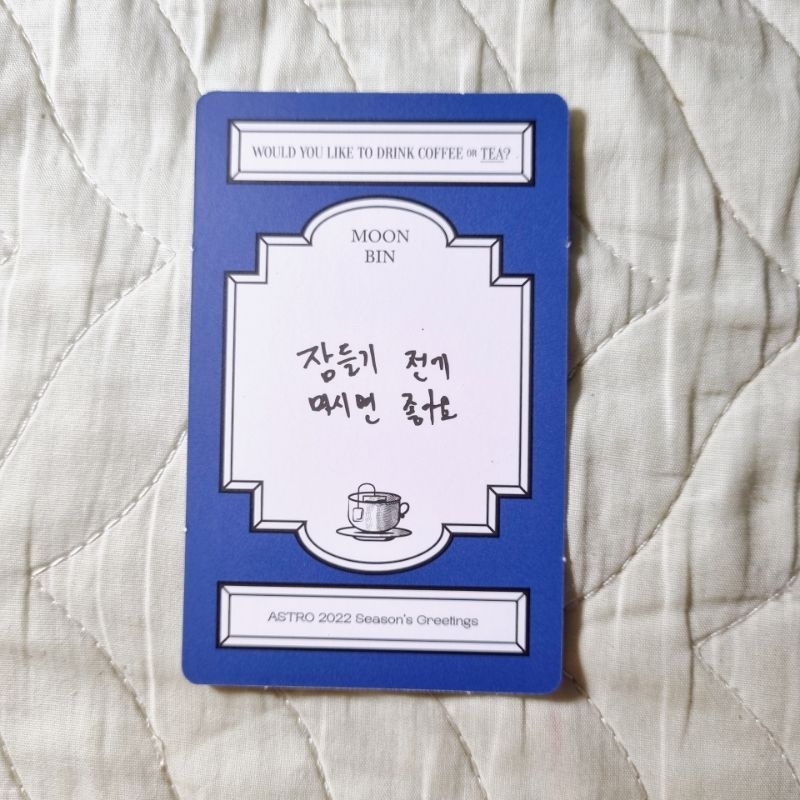 WOULD YOU LIKE TO DRINK COFFEE OR TEA?
MOON
BIN
잠들기 전게
먀시면 좋아요
ASTRO 2022 Season's Greetings